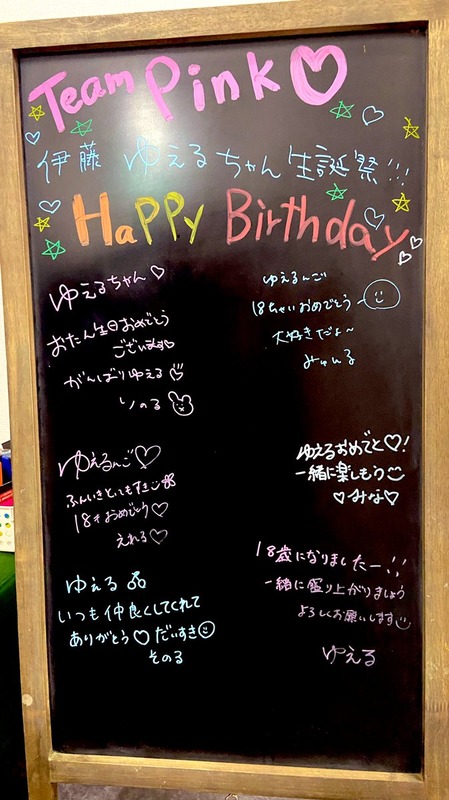 Team Pink♡
伊藤 ゆえるちゃん生誕祭!!!
HaPPy Birthday
ゆえるちゃん♡
おたん生日おめでとう
ございます♡
がんばりゆえる
りのる
ゆえるんご
18ちゃいおめでとう~
大好きだよ~
みゅんる
ゆえるんご♡
ふんいきとってもすき
18才おめでとう♡
えれる♡
ゆえるおめでと♡!
一緒に楽しもう
♡みな♡
ゆえる
いつも仲良くしてくれて
ありがとう♡だいすき
そのる
18歳になりましたー!!
一緒に盛り上がりましょう
よろしくお願いします
ゆえる